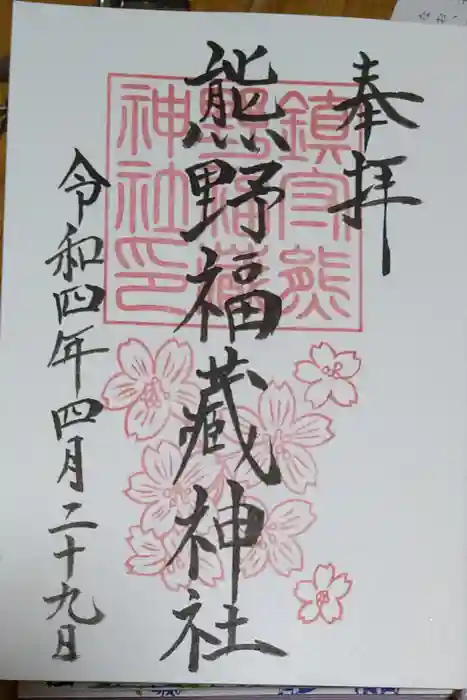 奉拝
熊野福蔵神社
令和四年四月二十九日
鎮守熊
野福蔵
神社印